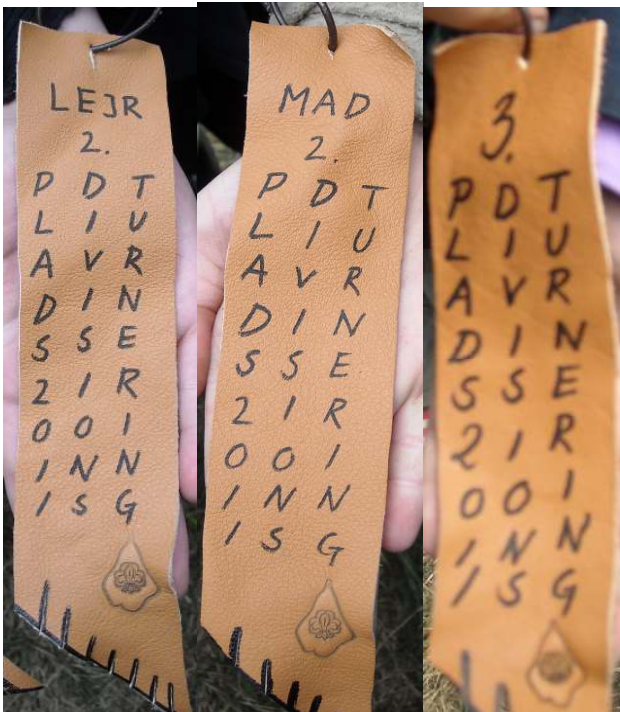 LEJR
2.
PLADS2011
DIVISIONS
TURNERING
MAD
2.
PLADS2011
DIVISIONS
TURNERING
3.
PLADS2011
DIVISIONS
TURNERING